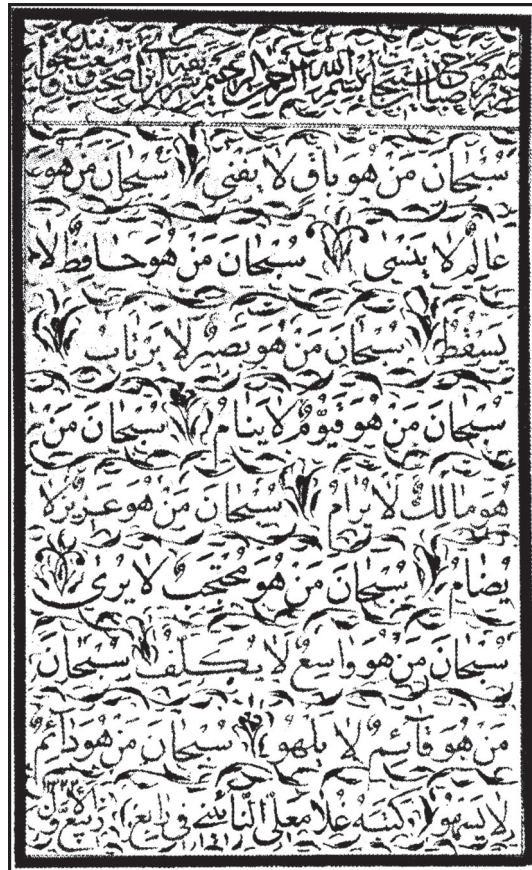 بسم الله الرحمن الرحيم
سُبْحَانَ مَنْ هُوَ بَاقٍ لَا يَفْنَى سُبْحَانَ مَنْ هُوَ
عَالِمٌ لَا يَنْسَى سُبْحَانَ مَنْ هُوَ حَافِظٌ لَا
يَسْقُطُ سُبْحَانَ مَنْ هُوَ بَصِيرٌ لَا يَرْتَابُ
سُبْحَانَ مَنْ هُوَ قَيُّومٌ لَا يَنَامُ سُبْحَانَ مَنْ
هُوَ مَالِكٌ لَا يُرَامُ سُبْحَانَ مَنْ هُوَ عَزِيزٌ لَا
يُضَامُ سُبْحَانَ مَنْ هُوَ مُحْتَجِبٌ لَا يُرَى
سُبْحَانَ مَنْ هُوَ وَاسِعٌ لَا يُكَلِّفُ سُبْحَانَ
مَنْ هُوَ قَآئِمٌ لَا يَلْهُو سُبْحَانَ مَنْ هُوَ دَآئِمٌ
لَا يَسْهُو كتبه غلامعلى النائينى فى رابع ربيع الاول